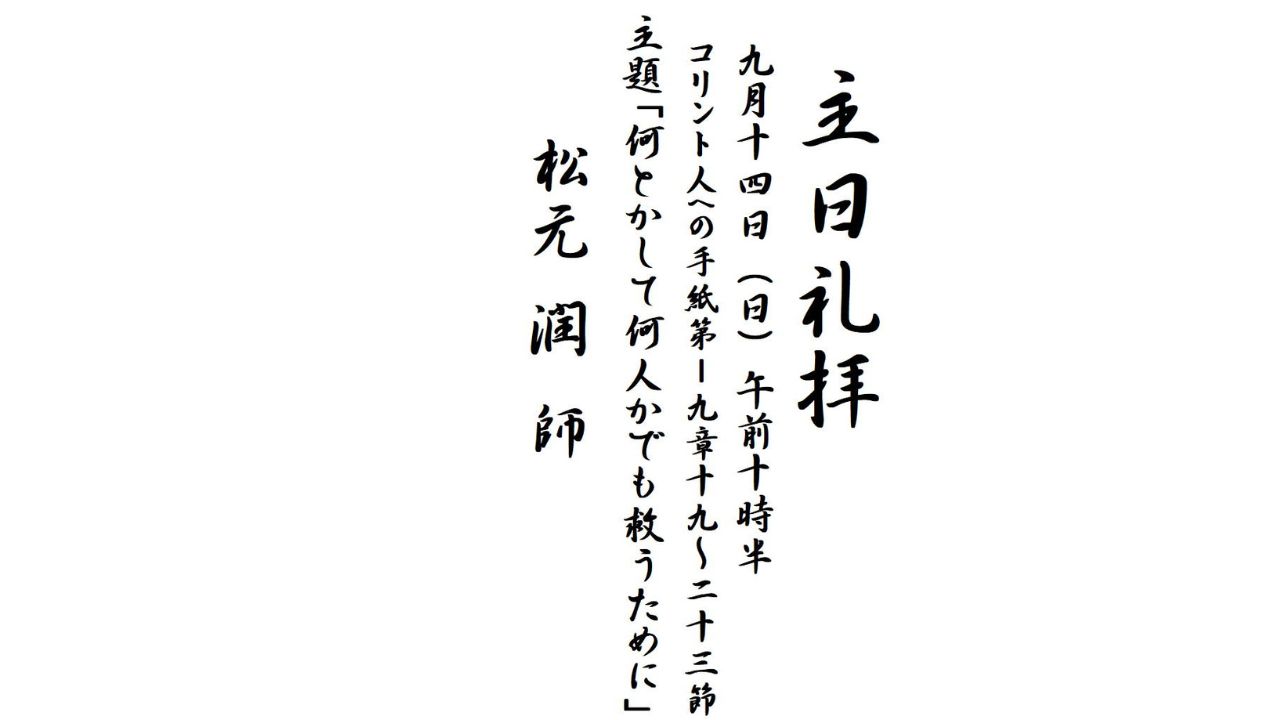 主日礼拝
九月十四日（日）午前十時半
コリント人への手紙第一九章十九～二十三節
主題「何とかして何人かでも救うために」
松元 潤 師